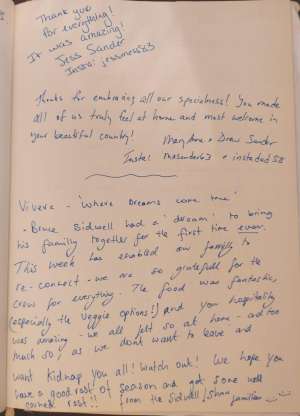 Thank you
for everything!
It was amazing!
Jess Sander
Insta:
Thanks for embracing all our specialness! You made
all of us truly feel at home and most welcome in
your beautiful country!
Mary Anne + Drew Sander
Insta:
Vivere - 'where dreams come true'
- Bruce Sidwell had a 'dream' to bring
his familly together for the first time ever.
This week has enabled our familly to
re-connect - we are so gratefull for the
crew for everything. The food was fantastic,
(especially the veggie options!) and your hospitality
was amazing - we all felt so at home - ad too
much so! as we dont want to leave and
want kidnap you all! Watch out! We hope you
have a good rest of season and get some well
earned rest!! from the Sidwell / families